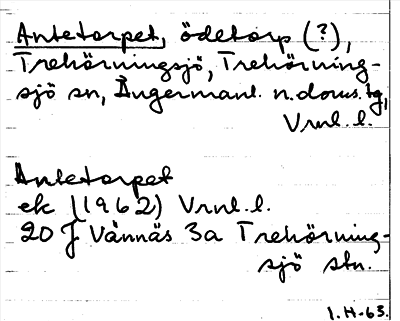 Antetorpet, ödetorp (?),
Trehörningsjö, Trehörning-
sjö sn, Ångermanl. n. doms. tg,
Vrnl. l.
Antetorpet
ek (1962) Vrnl. l.
20 J Vännäs 3a Trehörning-
sjö stn.
1. H-63.